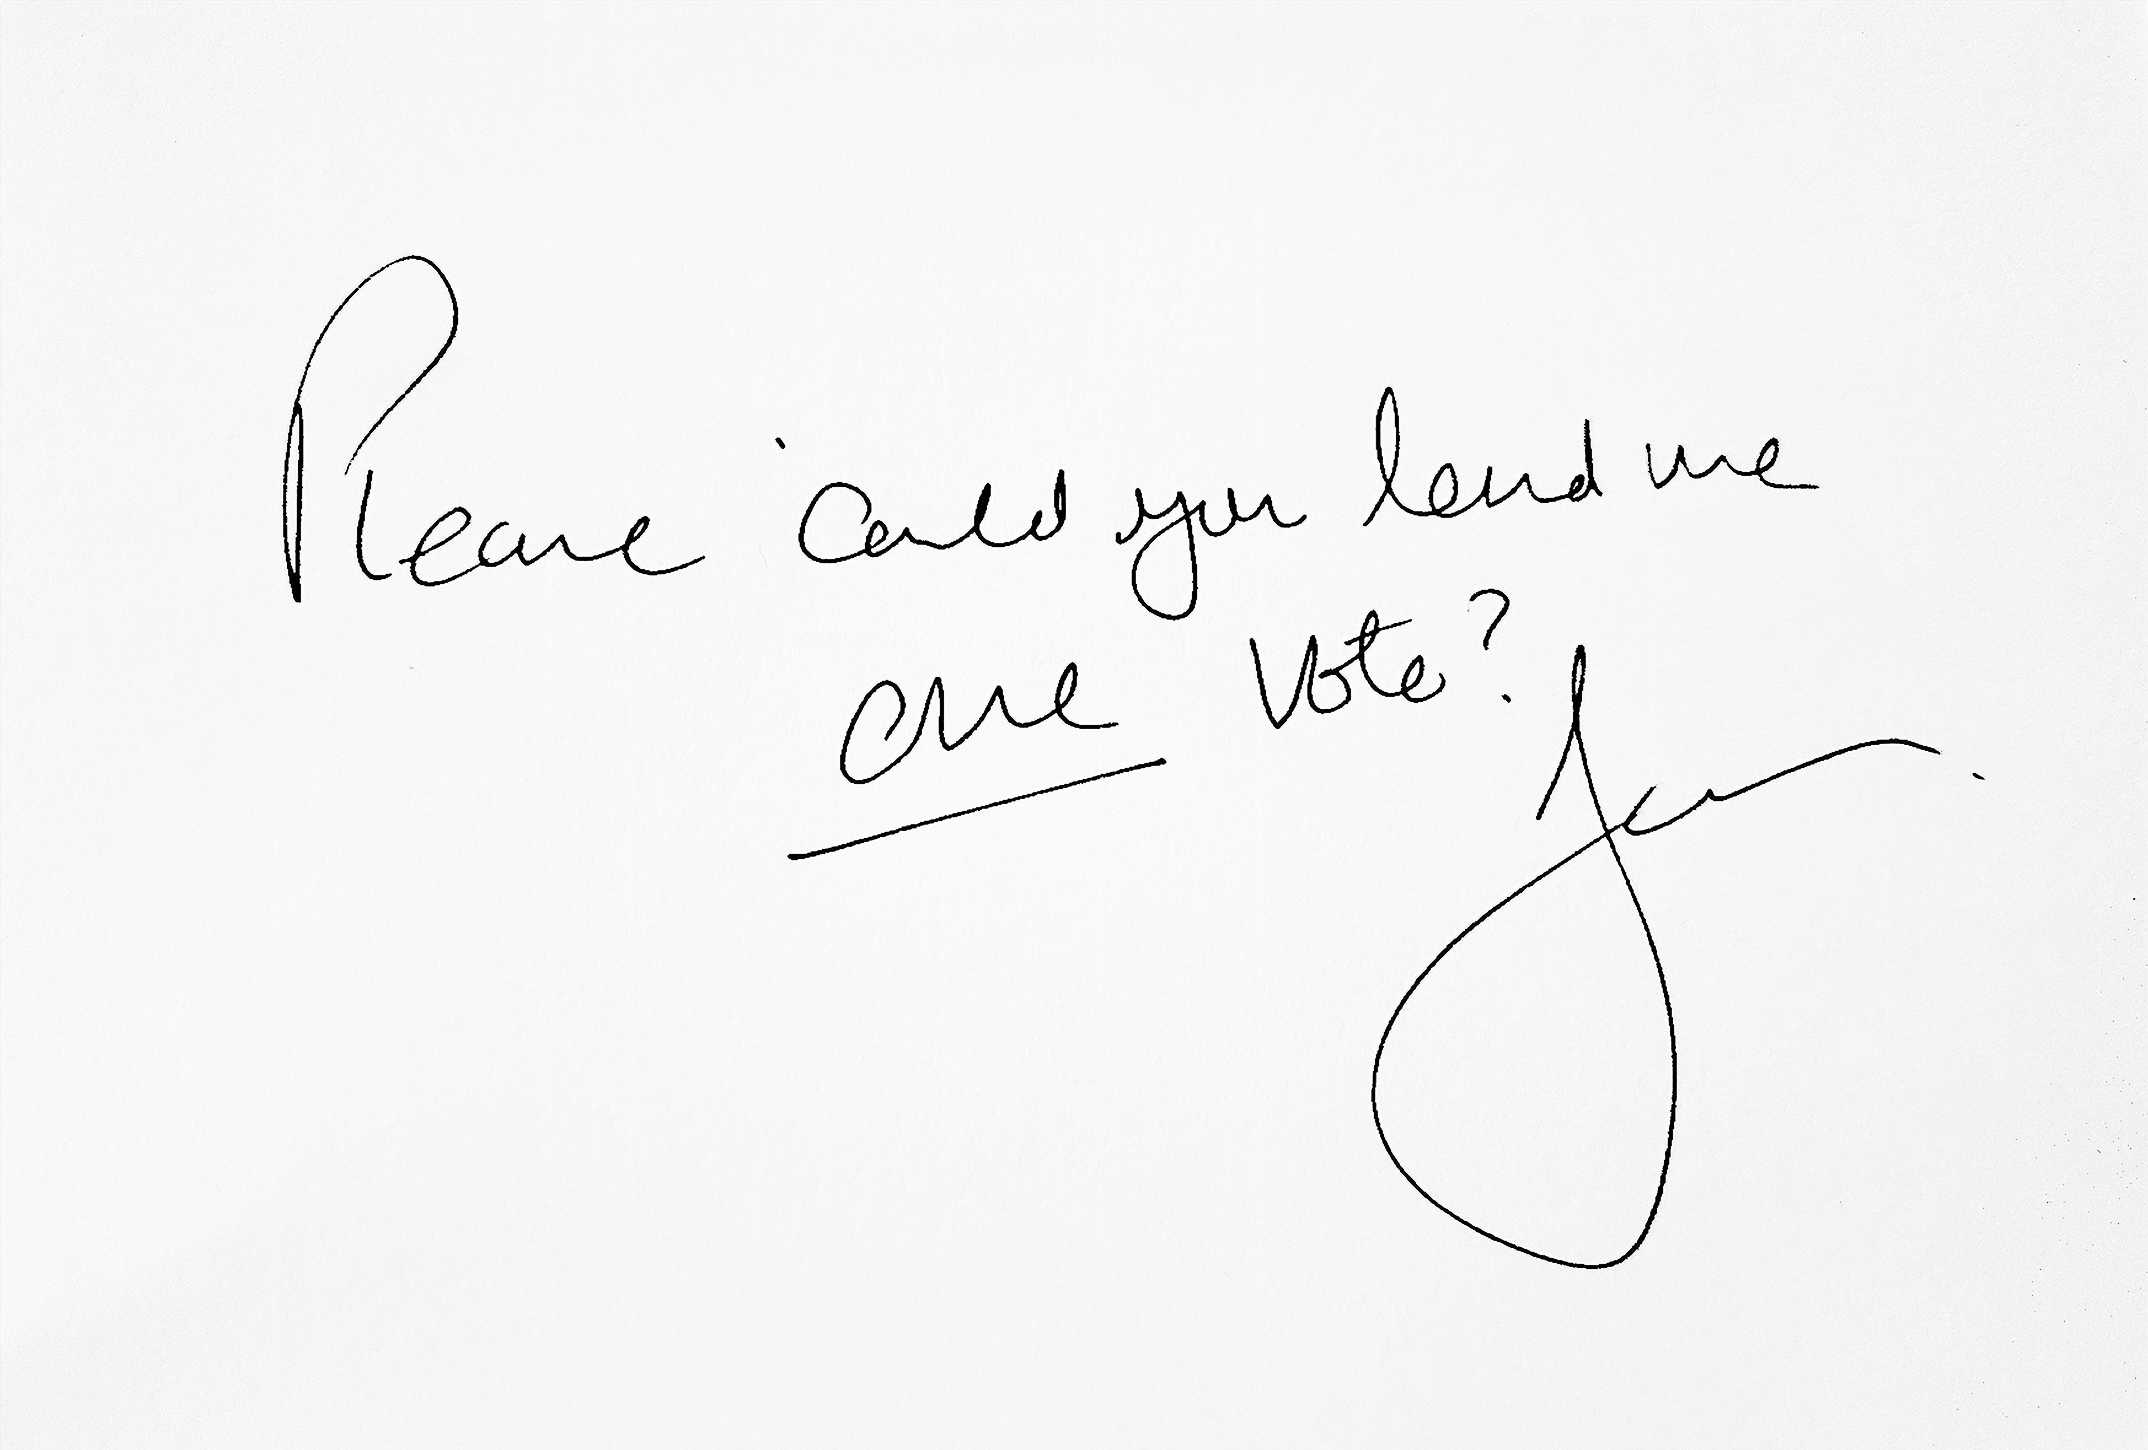 Please could you lend me
one vote?